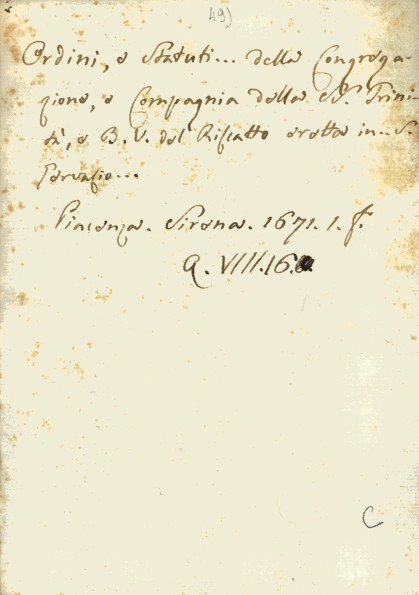 49)
Ordini, e Statuti... della Congrega-
zione, e Compagnia della SS. Trini-
tà, e B. V. del Riscatto eretta in... S.
Gervasio...
Piacenza. 1671. 1. f.
Q. VIII. 16.
C